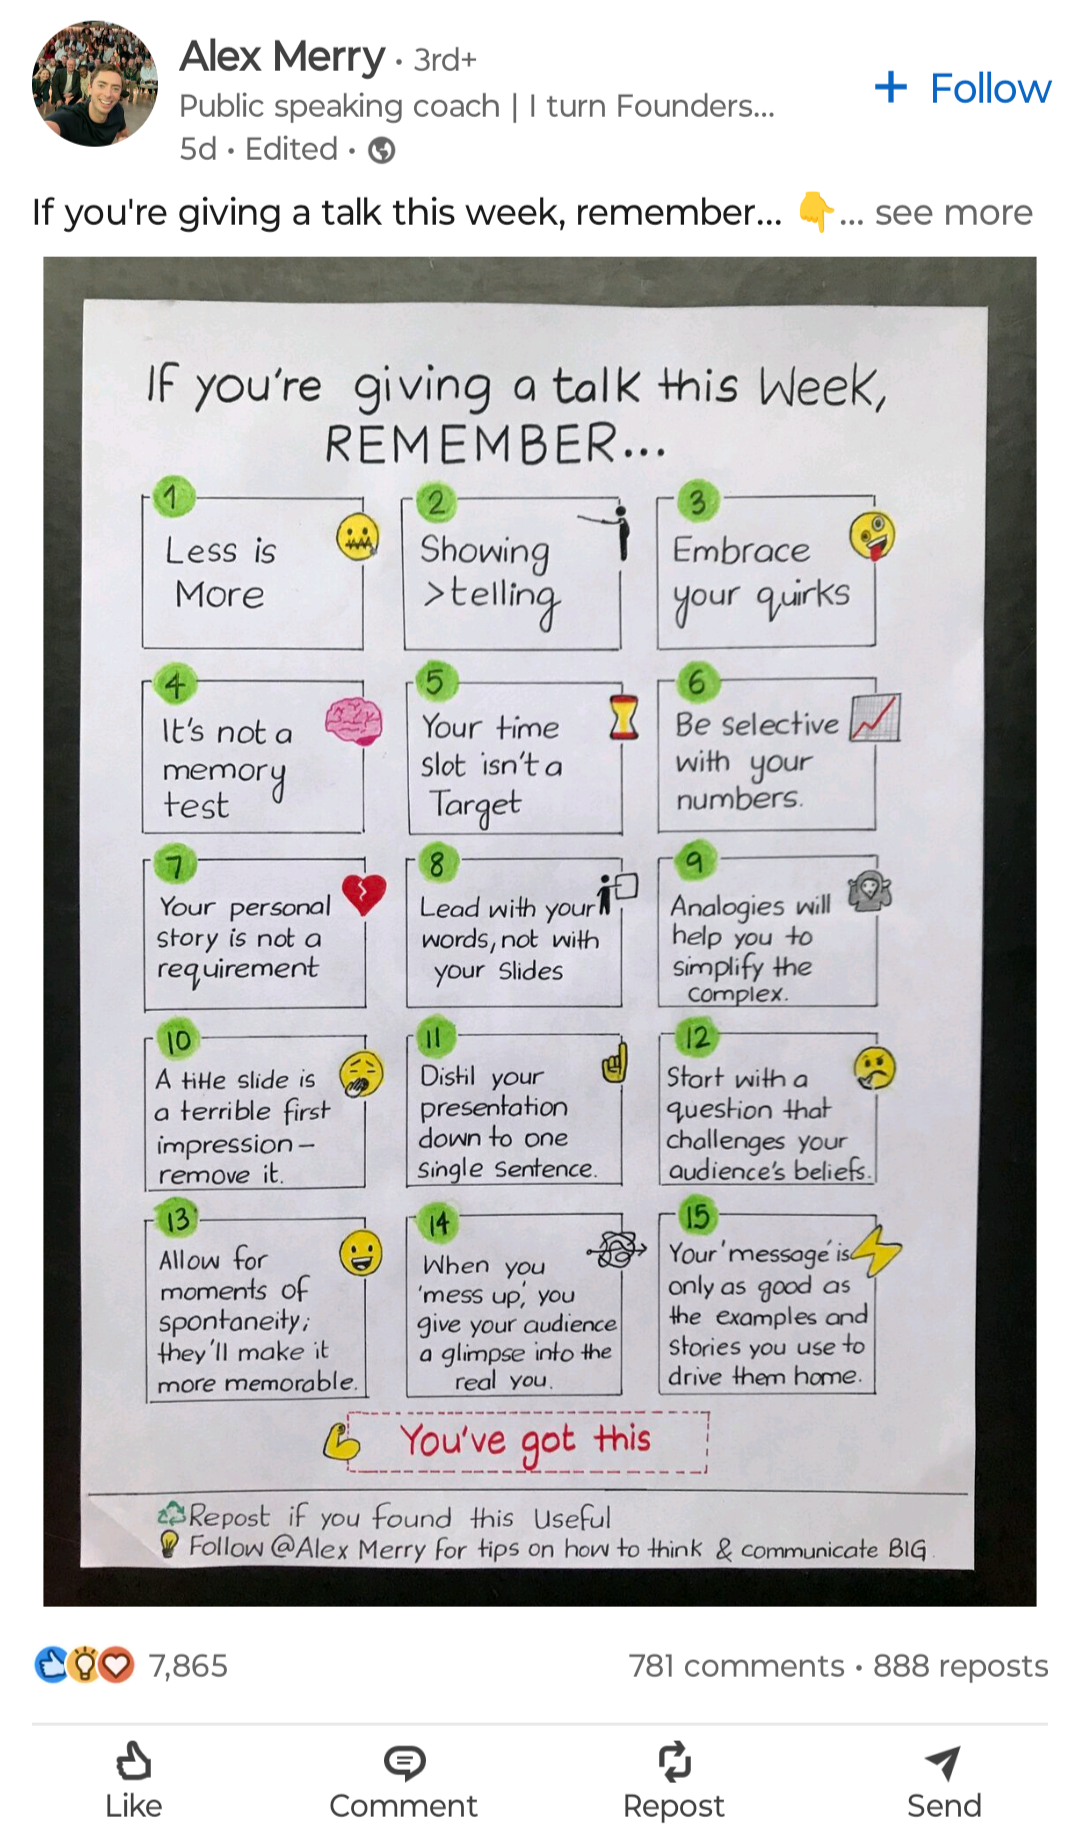 Alex Merry • 3rd+
Public speaking coach | I turn Founders...
5d • Edited •
+ Follow
If you're giving a talk this week, remember... 👇... see more
If you're giving a talk this Week,
REMEMBER...
1
Less is
More
2
Showing
>telling
3
Embrace
your quirks
4
It's not a
memory
test
5
Your time
slot isn't a
Target
6
Be selective
with your
numbers.
7
Your personal
story is not a
requirement
8
Lead with your
words, not with
your Slides
9
Analogies will
help you to
simplify the
complex.
10
A title slide is
a terrible first
impression –
remove it.
11
Distil your
presentation
down to one
single sentence.
12
Start with a
question that
challenges your
audience's beliefs.
13
Allow for
moments of
spontaneity;
they'll make it
more memorable.
14
When you
'mess up', you
give your audience
a glimpse into the
real you.
15
Your 'message' is
only as good as
the examples and
stories you use to
drive them home.
You've got this
Repost if you found this Useful
Follow @Alex Merry for tips on how to think & communicate BIG.
7,865
781 comments • 888 reposts
Like
Comment
Repost
Send